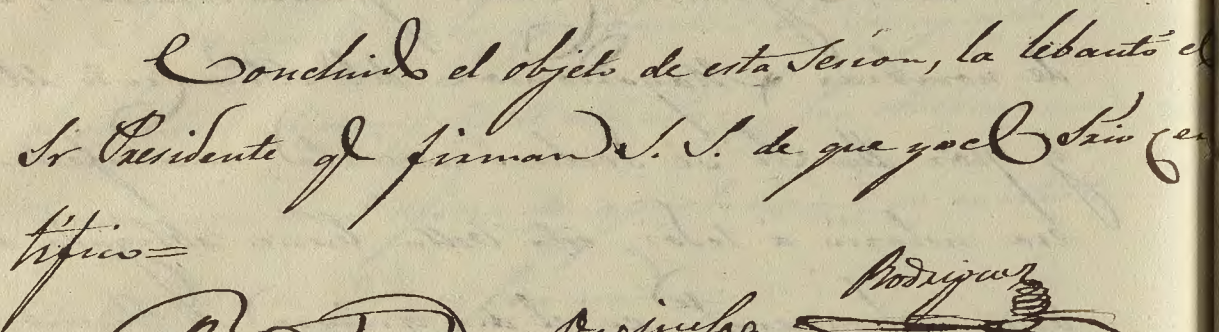 Concluido el objeto de esta Sesion, la lebantó el
Sr Presidente qe firman S. S. de que yo el Srio cer
tifico=
Rodriguez